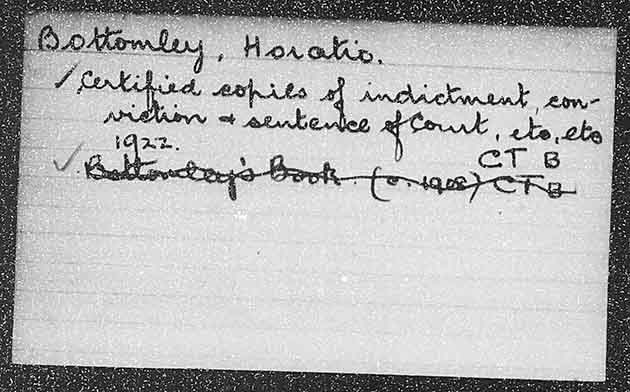 Bottomley, Horatio.
✓ Certified copies of indictment, con-
viction & sentence of Court, etc, etc
1922. CT B
✓ Bottomley's Book. (c. 1908) CT B